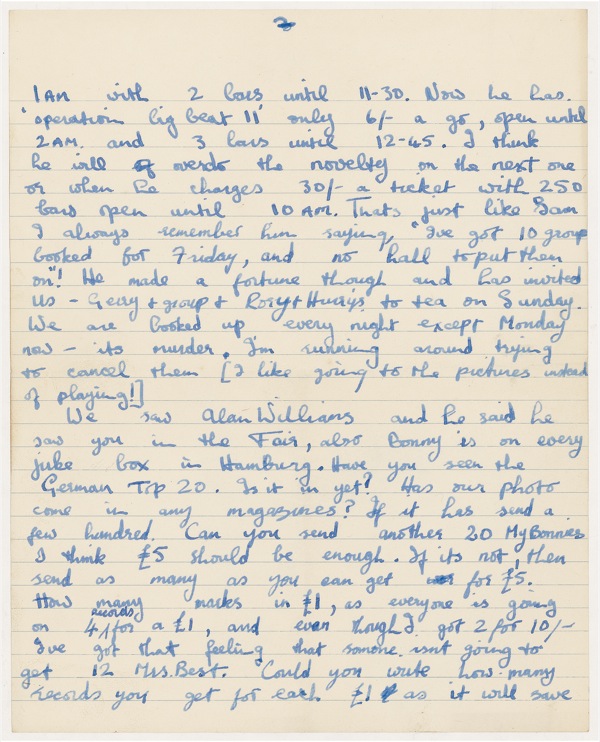 2
1AM with 2 bars until 11-30. Now he has
'operation big beat II' only 6/- a go, open until
2AM. and 3 bars until 12-45. I think
he will overdo the novelty on the next one
or when he charges 30/- a ticket with 250
bars open until 10 AM. Thats just like Sam
I always remember him saying, "Ive got 10 group
booked for Friday, and no hall to put them
on"! He made a fortune though and has invited
us - Gerry & group & Rory & Hurrys to tea on Sunday.
We are booked up every night except Monday
now - its murder. I'm running around trying
to cancel them [I like going to the pictures instead
of playing!]
We saw Alan Williams and he said he
saw you in the Fair, also Bonny is on every
juke box in Hamburg. Have you seen the
German Top 20. Is it in yet? Has our photo
come in any magazines? If it has send a
few hundred. Can you send another 20 My Bonnies
I think £5 should be enough. If its not, then
send as many as you can get for £5.
How many marks in £1, as everyone is going
on 4 records for a £1, and even though I got 2 for 10/-
I've got that feeling that somone isnt going to
get 12 Mrs. Best. Could you write how many
records you get for each £1 as it will save